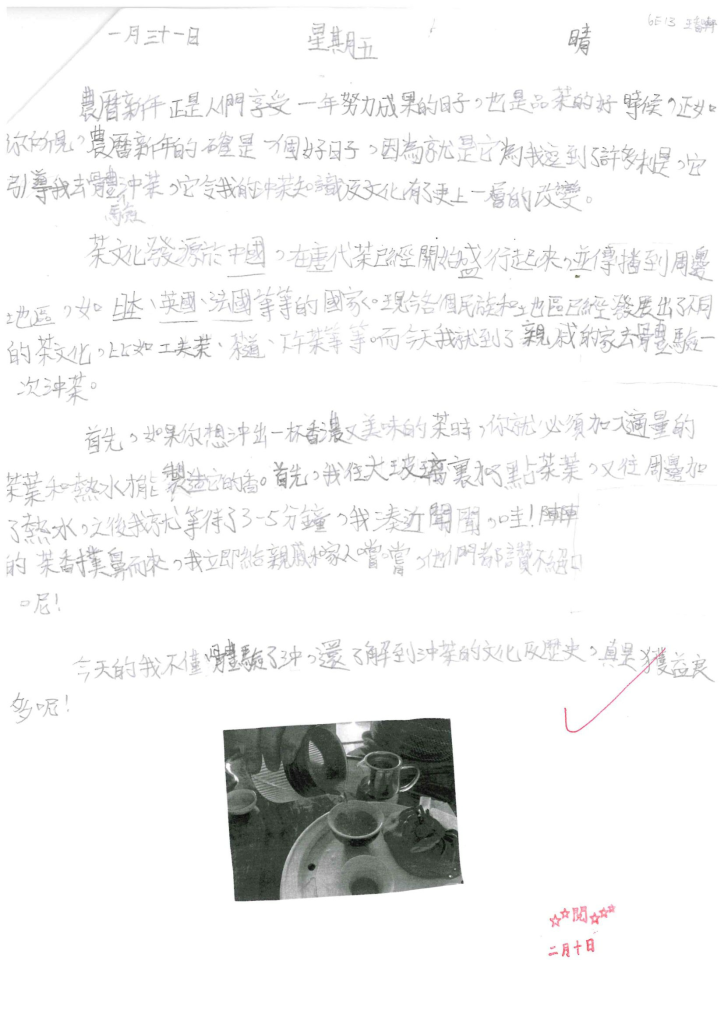 6E 13
一月三十一日 星期五 晴
農曆新年正是人們享受一年努力成果的日子，也是品茶的好時候，正如
你所說，農曆新年的確是一個好日子，因為就是它為我達到了許多利是，它
引導我去體驗沖茶，它令我的沖茶知識及文化有了更上一層的改變。
茶文化發源於中國，在唐代茶已經開始盛行起來，並傳播到周邊
地區，如日本、英國、法國等等的國家。現今各個民族和地區已經發展出了不同
的茶文化，比如工夫茶、茶道、下午茶等等。而今天我就到了親戚的家去體驗一
次沖茶。
首先，如果你想沖出一杯香濃又美味的茶時，你就必須加入適量的
茶葉和熱水才能製造它的香。首先，我往大玻璃裏加了點茶葉，又往周邊加
了熱水，之後我就等待了3-5分鐘，我湊近聞聞，哇！陣陣
的茶香撲鼻而來，我立即給親戚和家人嚐嚐，他們都讚不絕口
。呢！
今天的我不僅體驗了沖，還了解到沖茶的文化及歷史，真是獲益良
多呢！
☆☆閱☆☆☆
二月十日